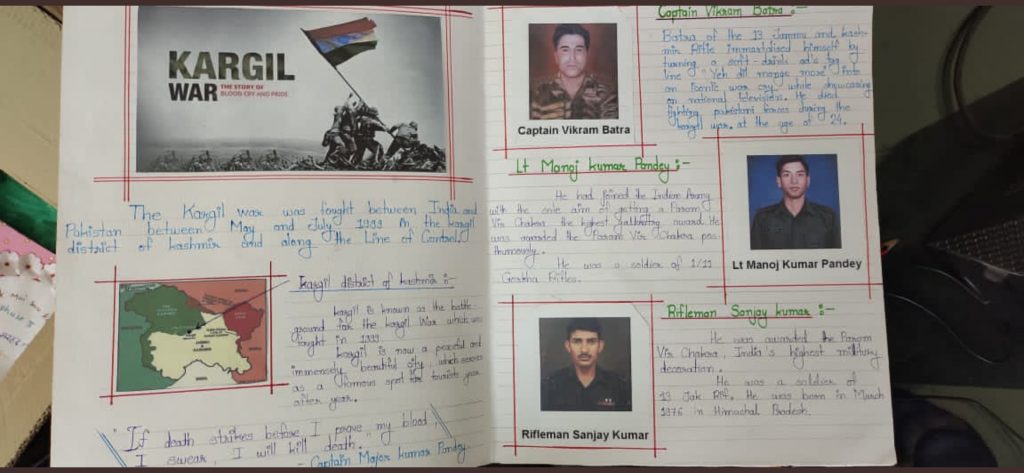 KARGIL
WAR THE STORY OF
BLOOD CRY AND PRIDE
The Kargil war was fought between India and
Pakistan between May and July 1999 in the kargil
district of kashmir and along the Line of Control.
Kargil district of kashmir :-
kargil is known as the battle
ground for the kargil War which was
fought in 1999
kargil is now a peaceful and
immensely beautiful city, which serves
as a famous spot for tourists year
after year.
"If death strikes before I prove my blood,
I swear, I will kill death.
- Captain Major kumar Pandey.
Captain Vikram Batra
Captain Vikram Batra :-
Batra of the 13 Jammu and kash-
mir Rifle immortalised himself by
turning a soft-drink ad's tag
line "Yeh dil mange more" into
an Iconic war cry while showcasing
on national television. He died
fighting pakistani forces during the
kargil war. at the age of 24.
Lt Manoj kumar Pandey :-
He had joined the Indian Army
with the sole aim of getting a Param
Vir Chakra, the highest gallantry award. He
was awarded the Param Vir Chakra pos-
thumously.
He was a soldier of 1/11
Gorkha Rifles.
Lt Manoj Kumar Pandey
Rifleman Sanjay kumar :-
He was awarded the Param
Vir Chakra, India's highest military
decoration.
He was a soldier of
13 Jak Rif. He was born in March
1976 in Himachal Pradesh.
Rifleman Sanjay Kumar